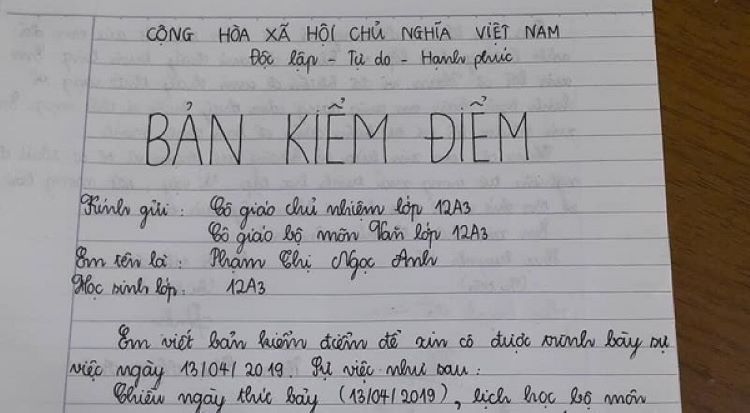 CỘNG HÒA XÃ HỘI CHỦ NGHĨA VIỆT NAM
Độc lập - Tự do - Hạnh phúc
BẢN KIỂM ĐIỂM
Kính gửi : Cô giáo chủ nhiệm lớp 12A3
Cô giáo bộ môn Văn lớp 12A3
Em tên là : Phạm Thị Ngọc Anh
Học sinh lớp : 12A3
Em viết bản kiểm điểm để xin cô được trình bày sự
việc ngày 13/04/2019. Sự việc như sau :
Chiều ngày thứ bảy (13/04/2019), lịch học bộ môn